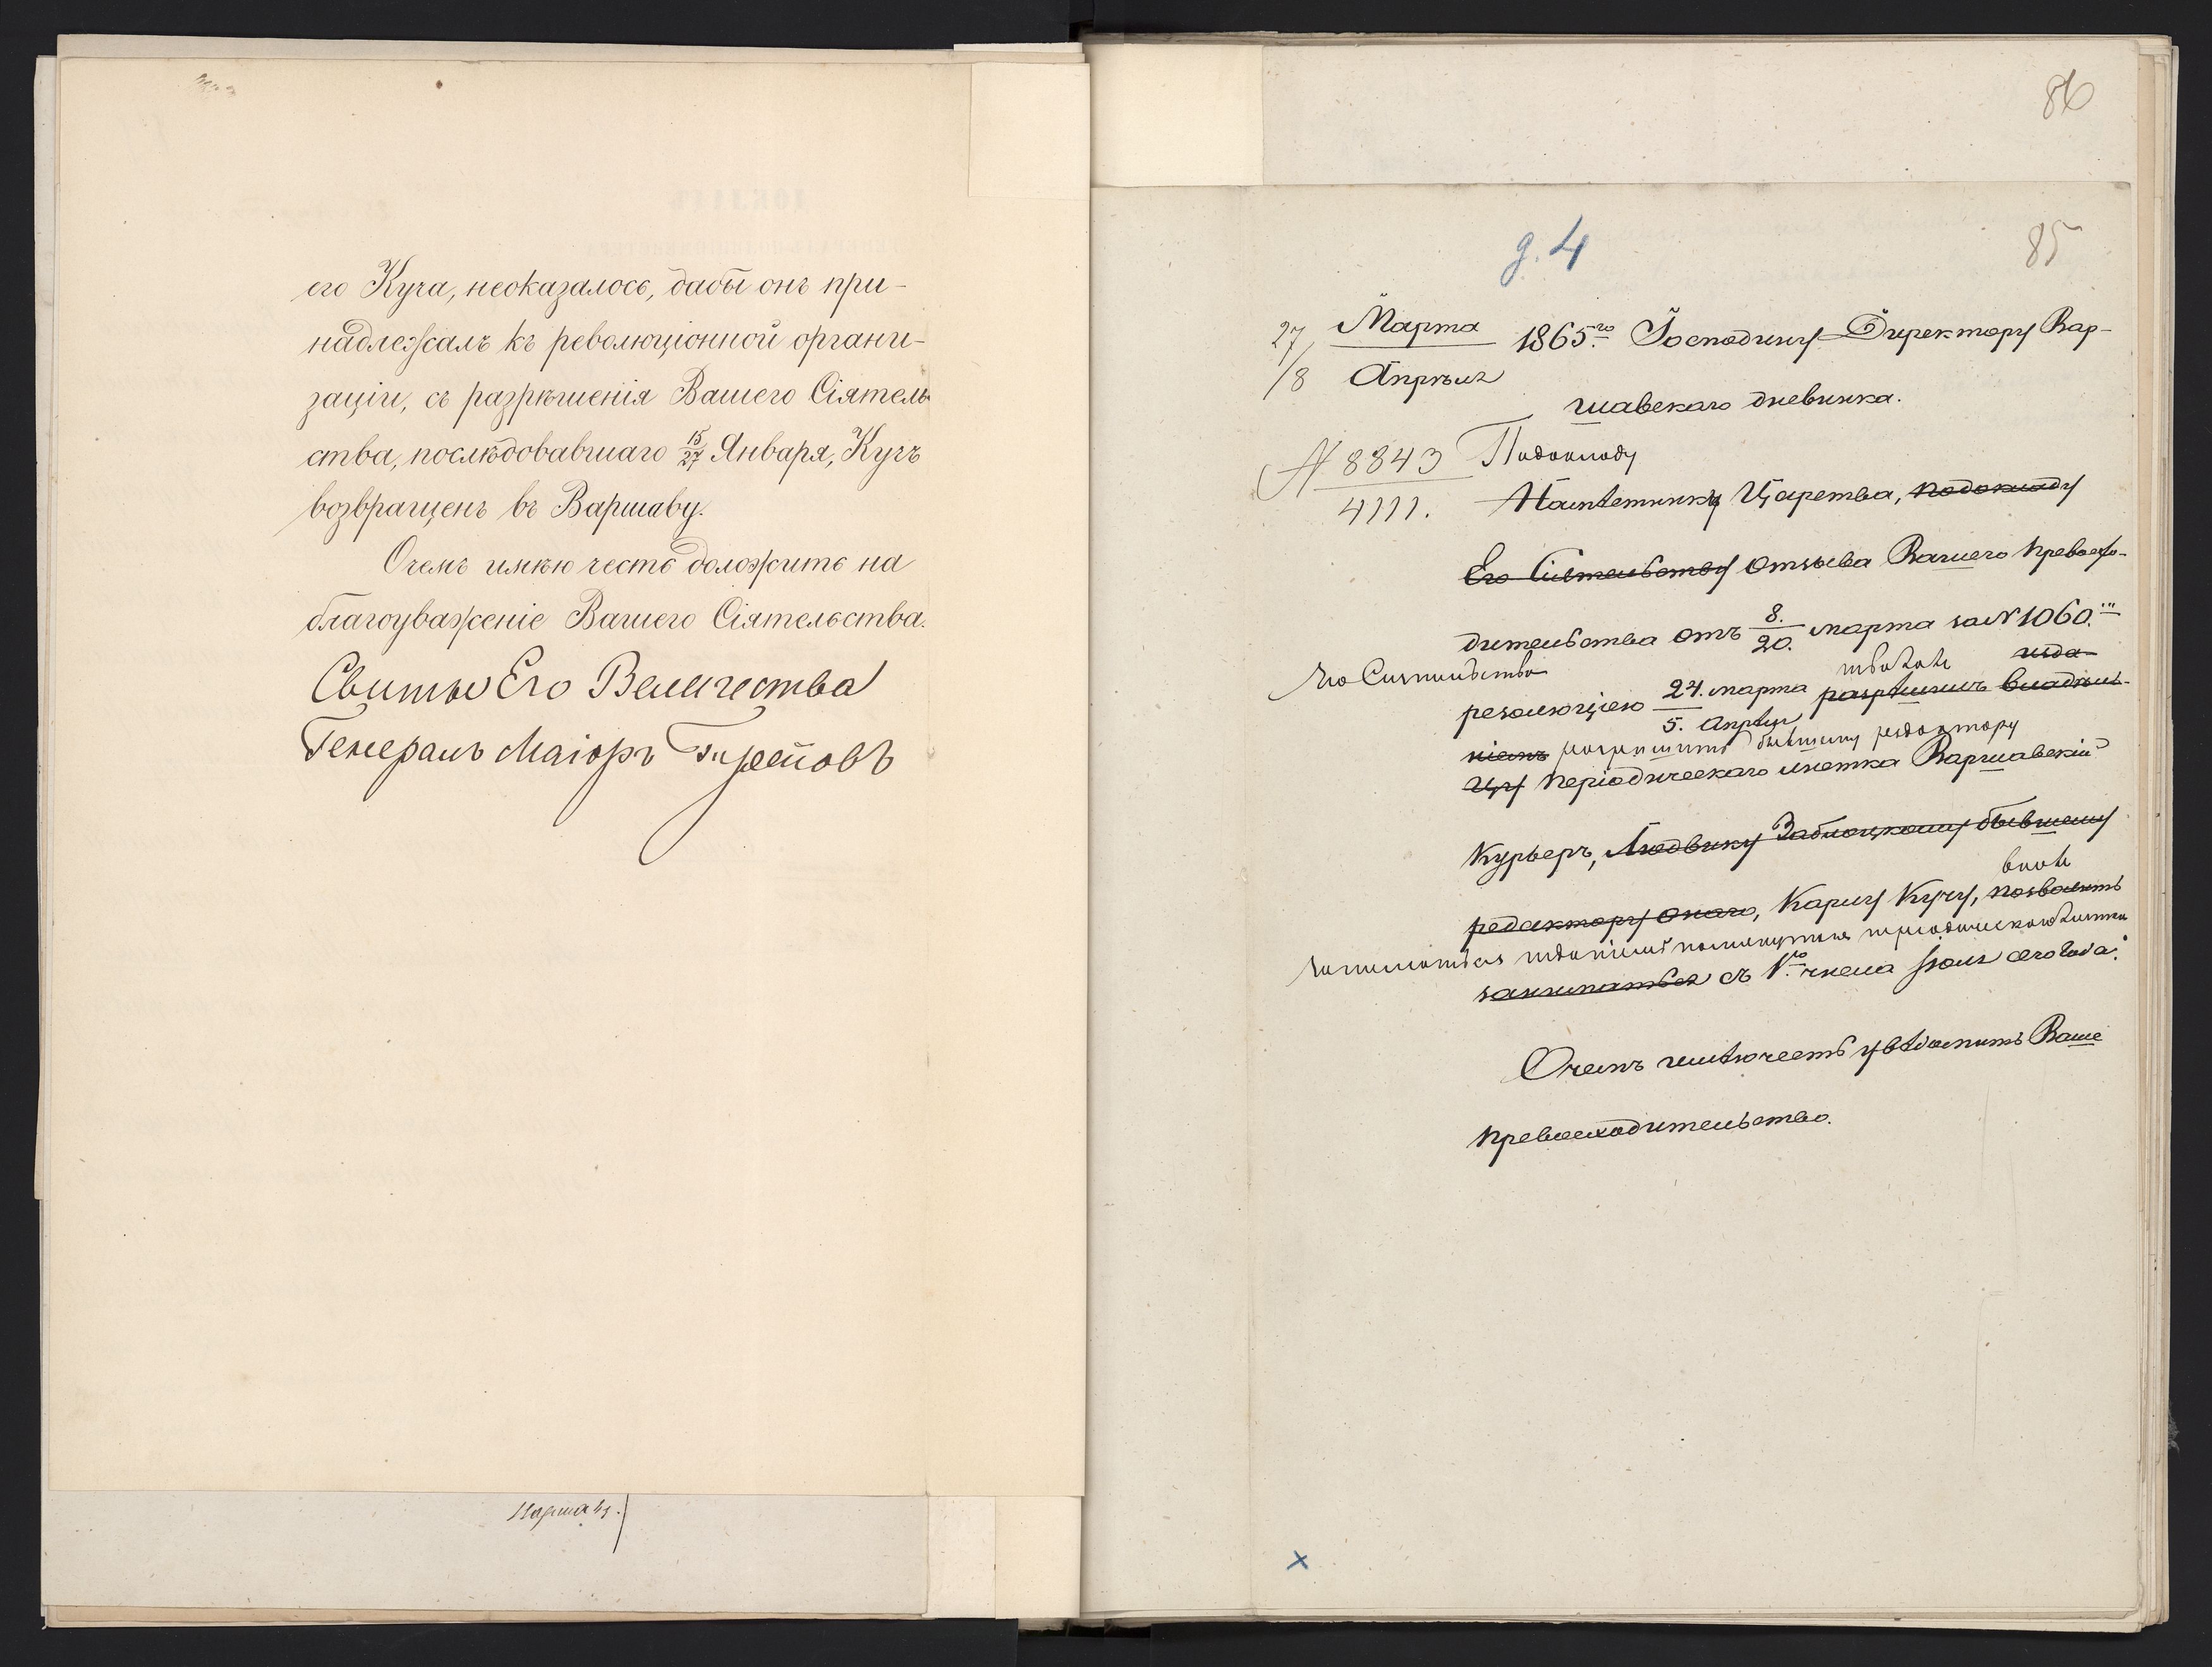 его Куча, неоказалось, дабы онъ при-
надлежалъ къ революціонной органи-
заціи, съ разрѣшенія Вашего Сіятель
ства, послѣдовавшаго 15/27 Января, Кучъ
возвращенъ въ Варшаву.
Очемъ имѣю честь доложить на
благоуваженіе Вашего Сіятельства.
Свиты Его Величества
Генералъ Маіоръ Треповъ
86
д. 4
85
27 Марта / 8 Апрѣля 1865го Господину Директору Вар-
шавскаго дневника.
N 8843 / 4111.
По докладу
Намѣстнику Царства, по докладу
Его Сіятельству отзыва Вашего превосхо-
дительства отъ 8./20. марта за N 1060.
Его Сіятельство
резолюціею 24. марта / 5. Апрѣля разрѣшилъ владѣль-
изда-
ніемъ разрешить бывшему редактору
цу періодическаго листка Варшавскій
Курьеръ, Людвику Заблоцкому бывшему
редактору онаго, Карлу Кучу, позволить
вновь
заниматься изданіемъ періодическаго листка
заниматься съ 1го числа Іюля сего года.
Очемъ имѣю честь увѣдомить Ваше
превосходительство.